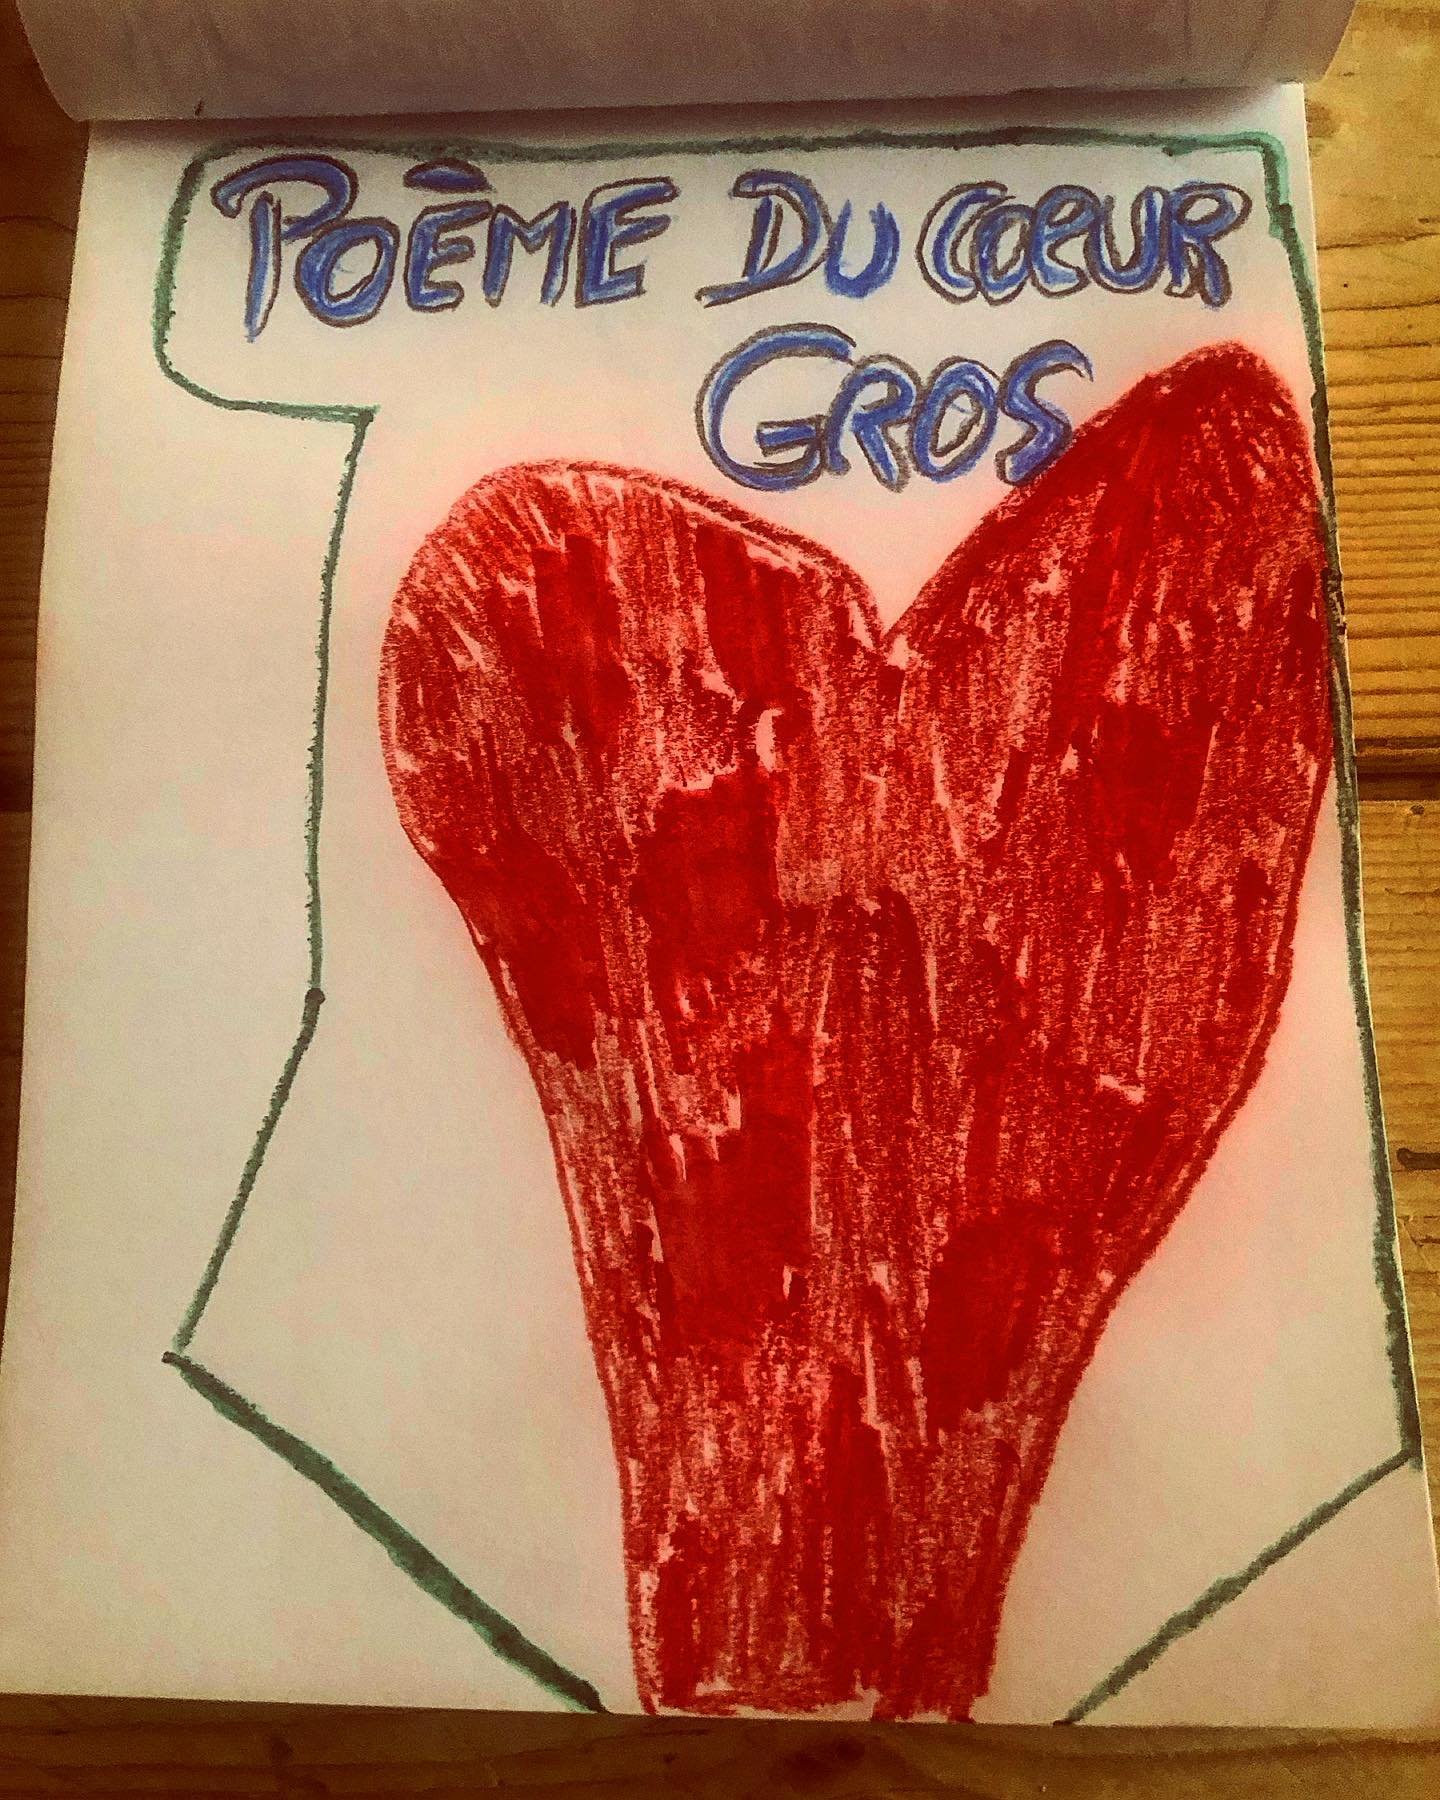 POÈME DU COEUR
GROS